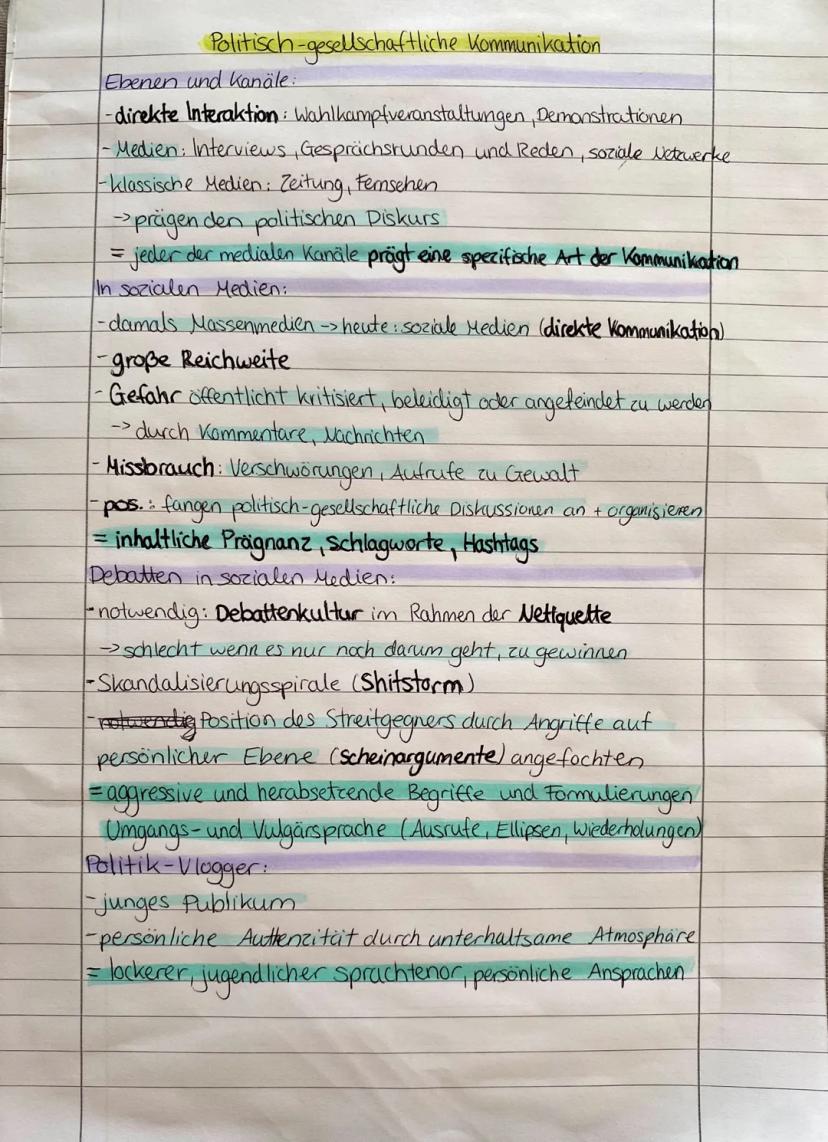 Politisch-gesellschaftliche Kommunikation
Ebenen und Kanäle:
-direkte Interaktion: Wahlkampfveranstaltungen, Demonstrationen
- Medien: Interviews, Gesprächsrunden und Reden, soziale Netzwerke
-klassische Medien: Zeitung, Fernsehen
-> prägen den politischen Diskurs
= jeder der medialen Kanäle prägt eine spezifische Art der Kommunikation
In sozialen Medien:
-damals Massenmedien -> heute: soziale Medien (direkte Kommunikation)
- große Reichweite
- Gefahr öffentlicht kritisiert, beleidigt oder angefeindet zu werden
-> durch Kommentare, Nachrichten
- Missbrauch: Verschwörungen, Aufrufe zu Gewalt
- pos.: fangen politisch-gesellschaftliche Diskussionen an + organisieren
= inhaltliche Prägnanz, Schlagworte, Hashtags
Debatten in sozialen Medien:
-notwendig: Debattenkultur im Rahmen der Nettiquette
-> schlecht wenn es nur noch darum geht, zu gewinnen
- Skandalisierungsspirale (Shitstorm)
- notwendig Position des Streitgegners durch Angriffe auf
persönlicher Ebene (Scheinargumente) angefochten
= aggressive und herabsetzende Begriffe und Formulierungen
Umgangs- und Vulgärsprache (Ausrufe, Ellipsen, Wiederholungen)
Politik-Vlogger:
-junges Publikum
-persönliche Authenzität durch unterhaltsame Atmosphäre
= lockerer, jugendlicher Sprachtenor, persönliche Ansprachen